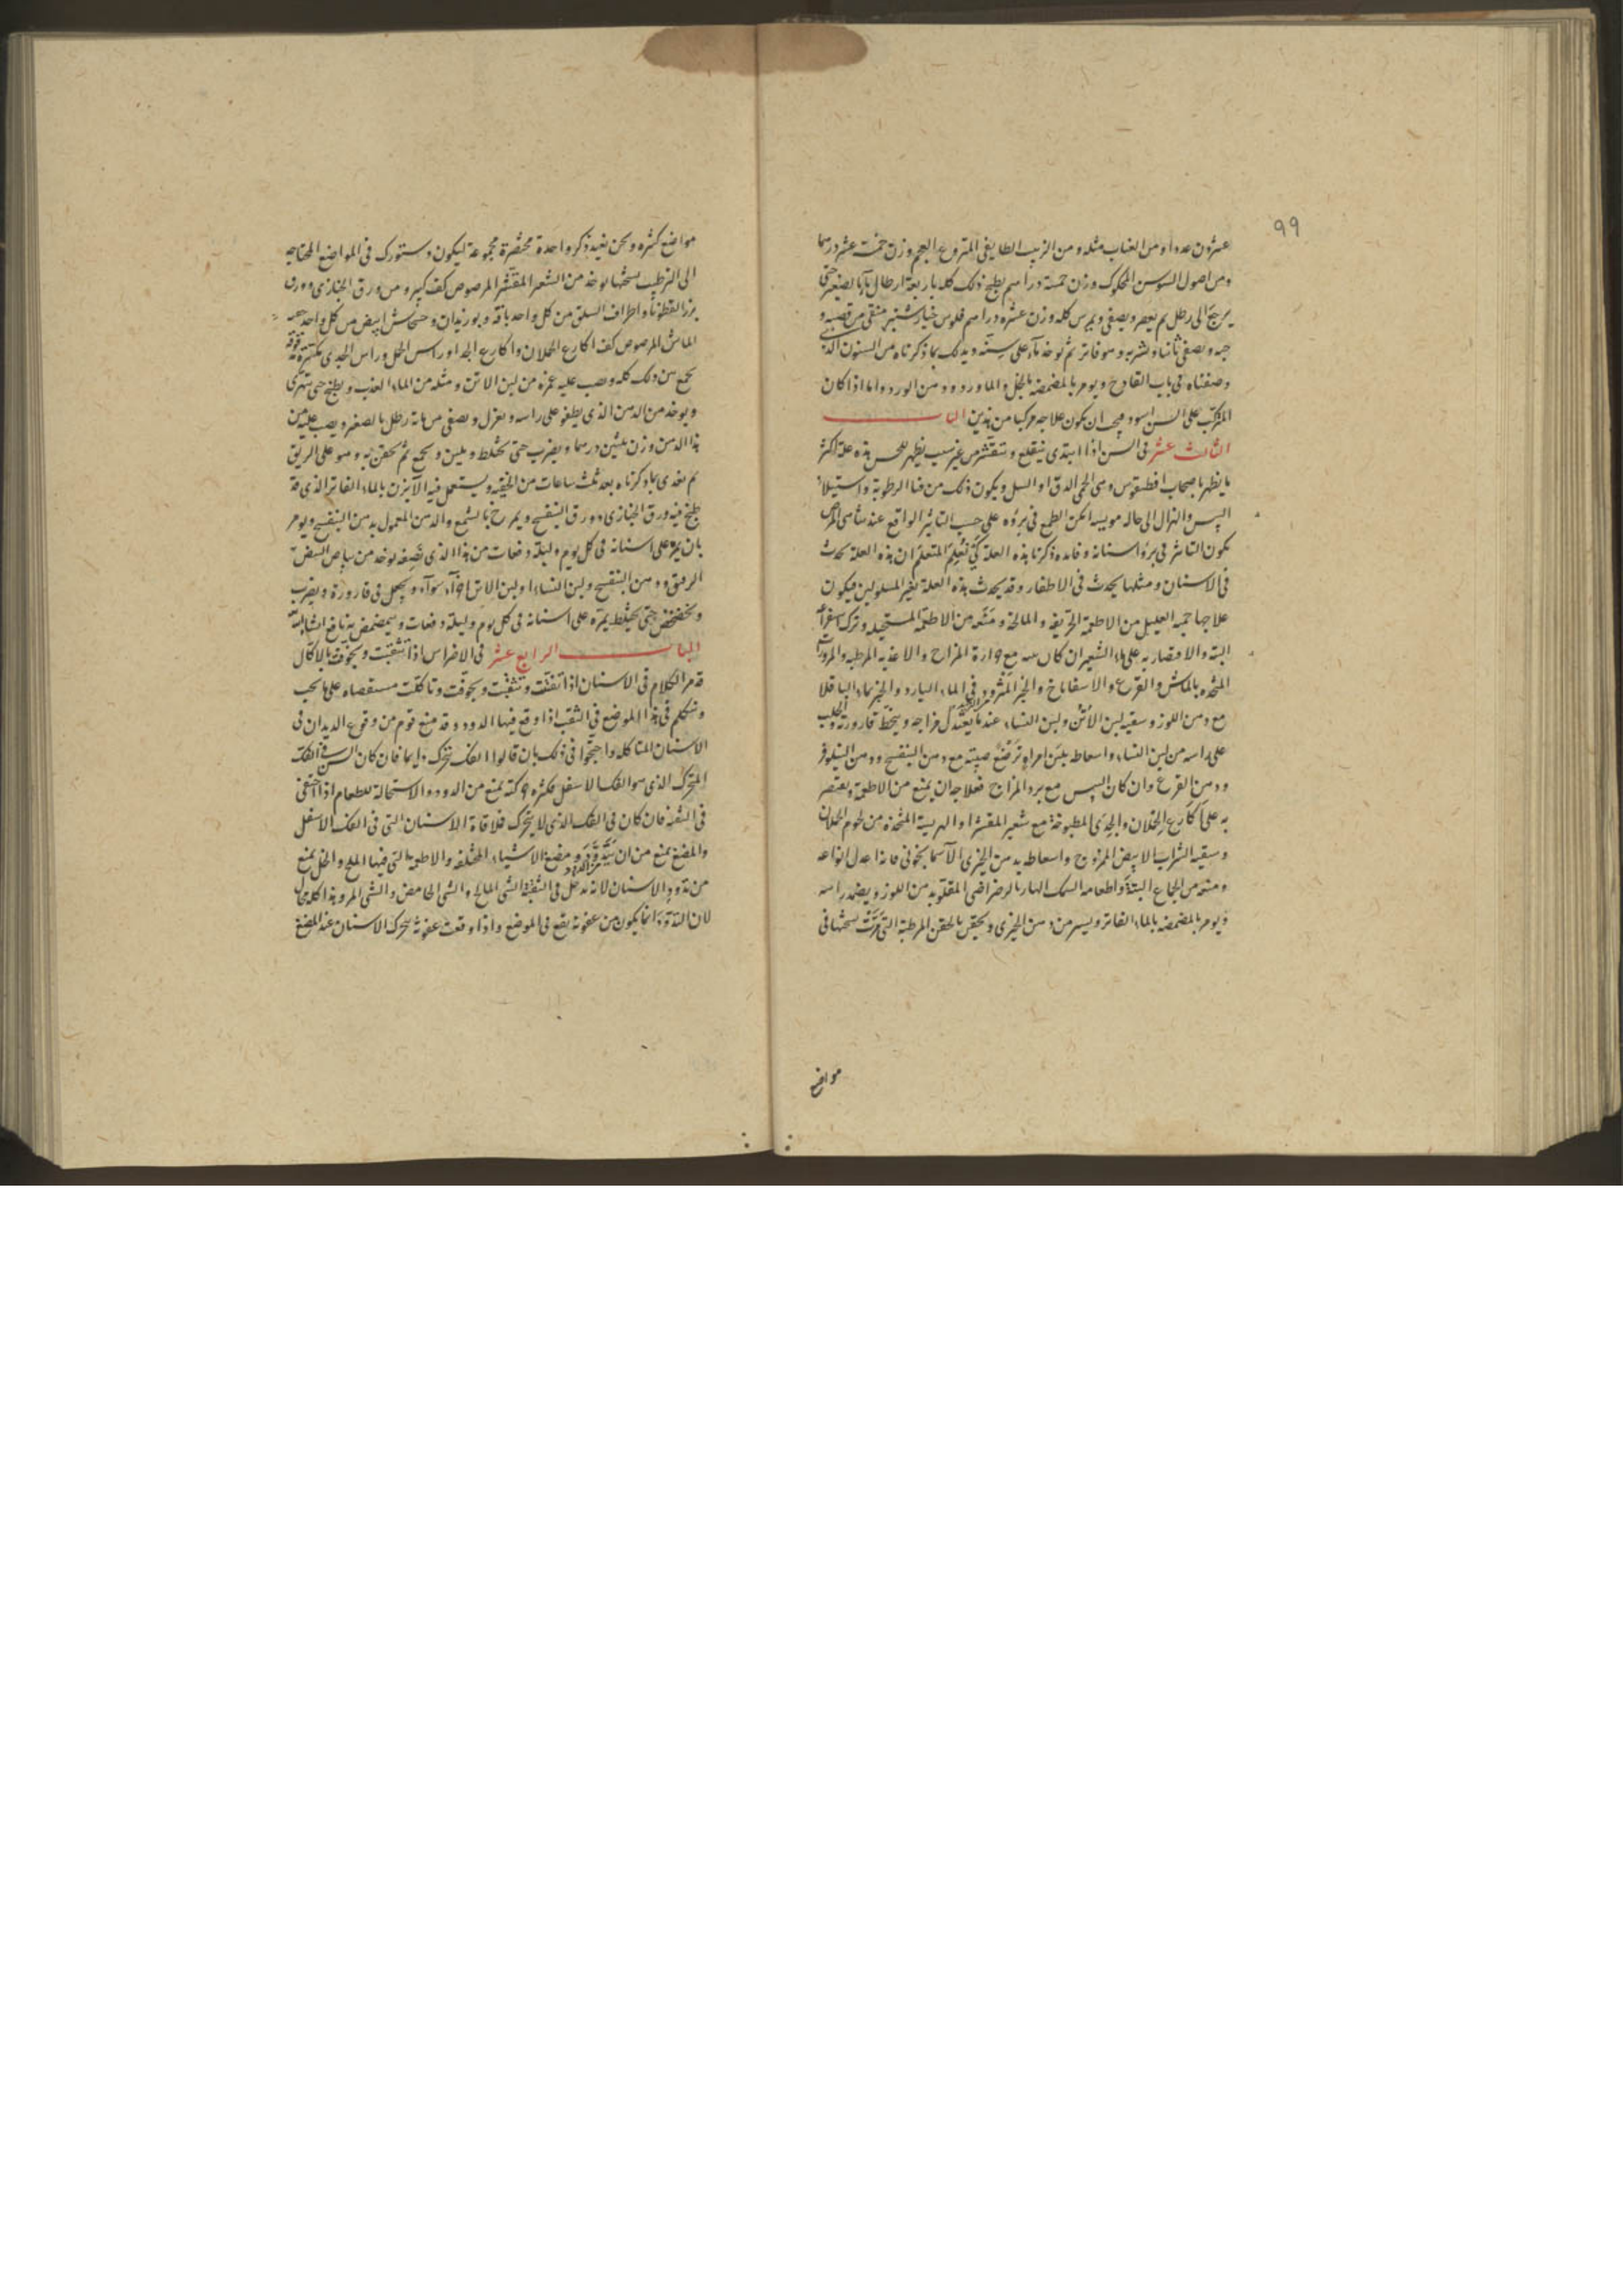 99
عشرون عددا ومن العناب مثله ومن الزبيب الطايفى المنزوع العجم وزن خمسة عشر درهما
ومن اصول السوسن المحكوك وزن خمسة دراهم يطبخ ذلك كله باربعة ارطال ماء بالصغير حتى
يرجع الى رطل ثم يعصر ويصفى ويمرس كله وزن عشرة دراهم فلوس خيارشنبر منقى من قصبه و
حبه ويصفى ثانيا ويشربه وهو فاتر ثم يوخذ ماء على سنه ويدلك بما ذكرناه من السنون الذى
وصفناه فى باب القلاح ويومر بالمضمضه بالخل والماورد ودهن الورد واما اذا كان
المتركب على السن اسود فيجب ان يكون علاجه مركبا من هذين الباب
الثالث عشر فى السن اذا ابتدى ينقلع وتتقشر من غير سبب يظهر للحس هذه علة اكثر
ما يظهر باصحاب اقطيقوس وهى الحمى الدق او السل ويكون ذلك من فنا الرطوبة واستيلا
اليبس والهزال الى حاله مويسه لكن الطمع فى بروه على حسب التاثير الواقع عند تناهى المرض
يكون التاثير فى برو اسنانه وفايده ذكرنا هذه العلة كى نُعلِم المتعلم ان هذه العلة تحدث
فى الاسنان ومثلها يحدث فى الاظفار وقد يحدث هذه العلة لغير المسلولين فيكون
علاجها حميه العليل من الاطعمة الحريفه والمالحة ومنعه من الاطعمة المستحيله وترك استفراغه
البته والاقتصار به على ماء الشعير ان كان يبسه مع حرارة المزاج والاغذيه المرطبه والمزورات
المتخذه بالماش والقرع والاسفاناخ والخبز المثرود فى الماء البارد والخبز بماء الباقلا
مع دهن اللوز وسقيه لبن الاتن ولبن النساء عندما يعتدل مزاجه وينحط قارورته ويحلب
على راسه من لبن النساء واسعاطه بلبن امراه ترضع صبيته مع دهن البنفسج ودهن النيلوفر
ودهن القرع وان كان اليبس مع برد المزاج فعلاجه ان يمنع من الاطعمة ويقتصر
به على اكارع الحملان والجدى المطبوخة مع شعير المقشر او الهريسة المتخذه من لحوم الحملان
وسقيه الشراب الابيض الممزوج واسعاطه بدهن الخيرى الآسمانجونى فانه اعدل انواعه
ومنعه من الجماع البتة واطعامه السمك الهاربا الرضراضى المقلو بدهن اللوز ويضمد راسه
ويومر بالمضمضه بالماء الفاتر ويسير من دهن الخيرى ويحقن بالحقن المرطبة التى مرَّت نسختها فى
مواضع
مواضع كثيره ونحن نعيد ذكر واحدة مختصرة مجموعة ليكون دستورك فى المواضع المحتاجه
الى الترطيب نسختها يوخذ من الشعير المقشر المرضوض كف كبير ومن ورق الخبازى وورق
بزر القطونا واطراف السلق من كل واحد باقه وبوزيدان وخشخاش ابيض من كل واحد
الماش المرضوض كف اكارع الحملان واكارع الجدا وراس الحمل وراس الجدى
يجمع من ذلك كله وصب عليه غمره من لبن الاتن ومثله من الماء العذب ويطبخ حتى يتهرى
ويوخذ من الدهن الذى يطفو على راسه ويعزل ويصفى من مائه رطل بالصغير ويصب عليه من
هذا الدهن وزن ثلثين درهما ويضرب حتى يختلط ويلين ويجمع ثم يحقن به وهو على الريق
ثم يغدى بما ذكرناه بعد ثلث ساعات من الحقنه ويستعمل فيه الآبزن بالماء الفاتر الذى قد
طبخ فيه ورق الخبازى وورق البنفسج ويمرخ بالشمع والدهن المعمول بدهن البنفسج ويومر
بان يمره على اسنانه فى كل يوم وليلة دفعات من هذا الذى نصفه يوخذ من بياض البيض
الرقيق ودهن البنفسج ولبن النساء او لبن الاتن اجزاء سواء ويجعل فى قارورة ويضرب
ويخضخض حتى يختلط يمره على اسنانه فى كل يوم وليلة دفعات ويتمضمض به نافع انشا الله
الباب الرابع عشر فى الاضراس اذا تثقبت وتجوفت بالاكال
قد مر الكلام فى الاسنان اذا تفتت وتثقبت وتجوفت وتاكلت مستقصاه على ما يجب
ونتكلم فى هذا الموضع فى الثقب اذا وقع فيها الدود وقد منع قوم من وقوع الديدان فى
الاسنان المتاكله واحتجوا فى ذلك بان قالوا الفك تتحرك دايما فان كان السن فى الفك
المتحرك الذى هو الفك الاسفل فكثره حركته تمنع من الدود والاستحالة للطعام اذا اختفى
فى الثقبه فان كان فى الفك الذى لا يتحرك فملاقاة الاسنان التى فى الفك الاسفل
والمضغ يمنع من ان يتدود ومضغ الاشياء المختلفه والاطعمة التى فيها الملح والخل يمنع
من تدود الاسنان لانه يدخل فى الثقبة الشى المالح والشى الحامض والشى المر وهذا كله محال
لان التدود انما يكون من عفونة يقع فى الموضع واذا وقعت عفونة بتحرك الاسنان عند المضغ